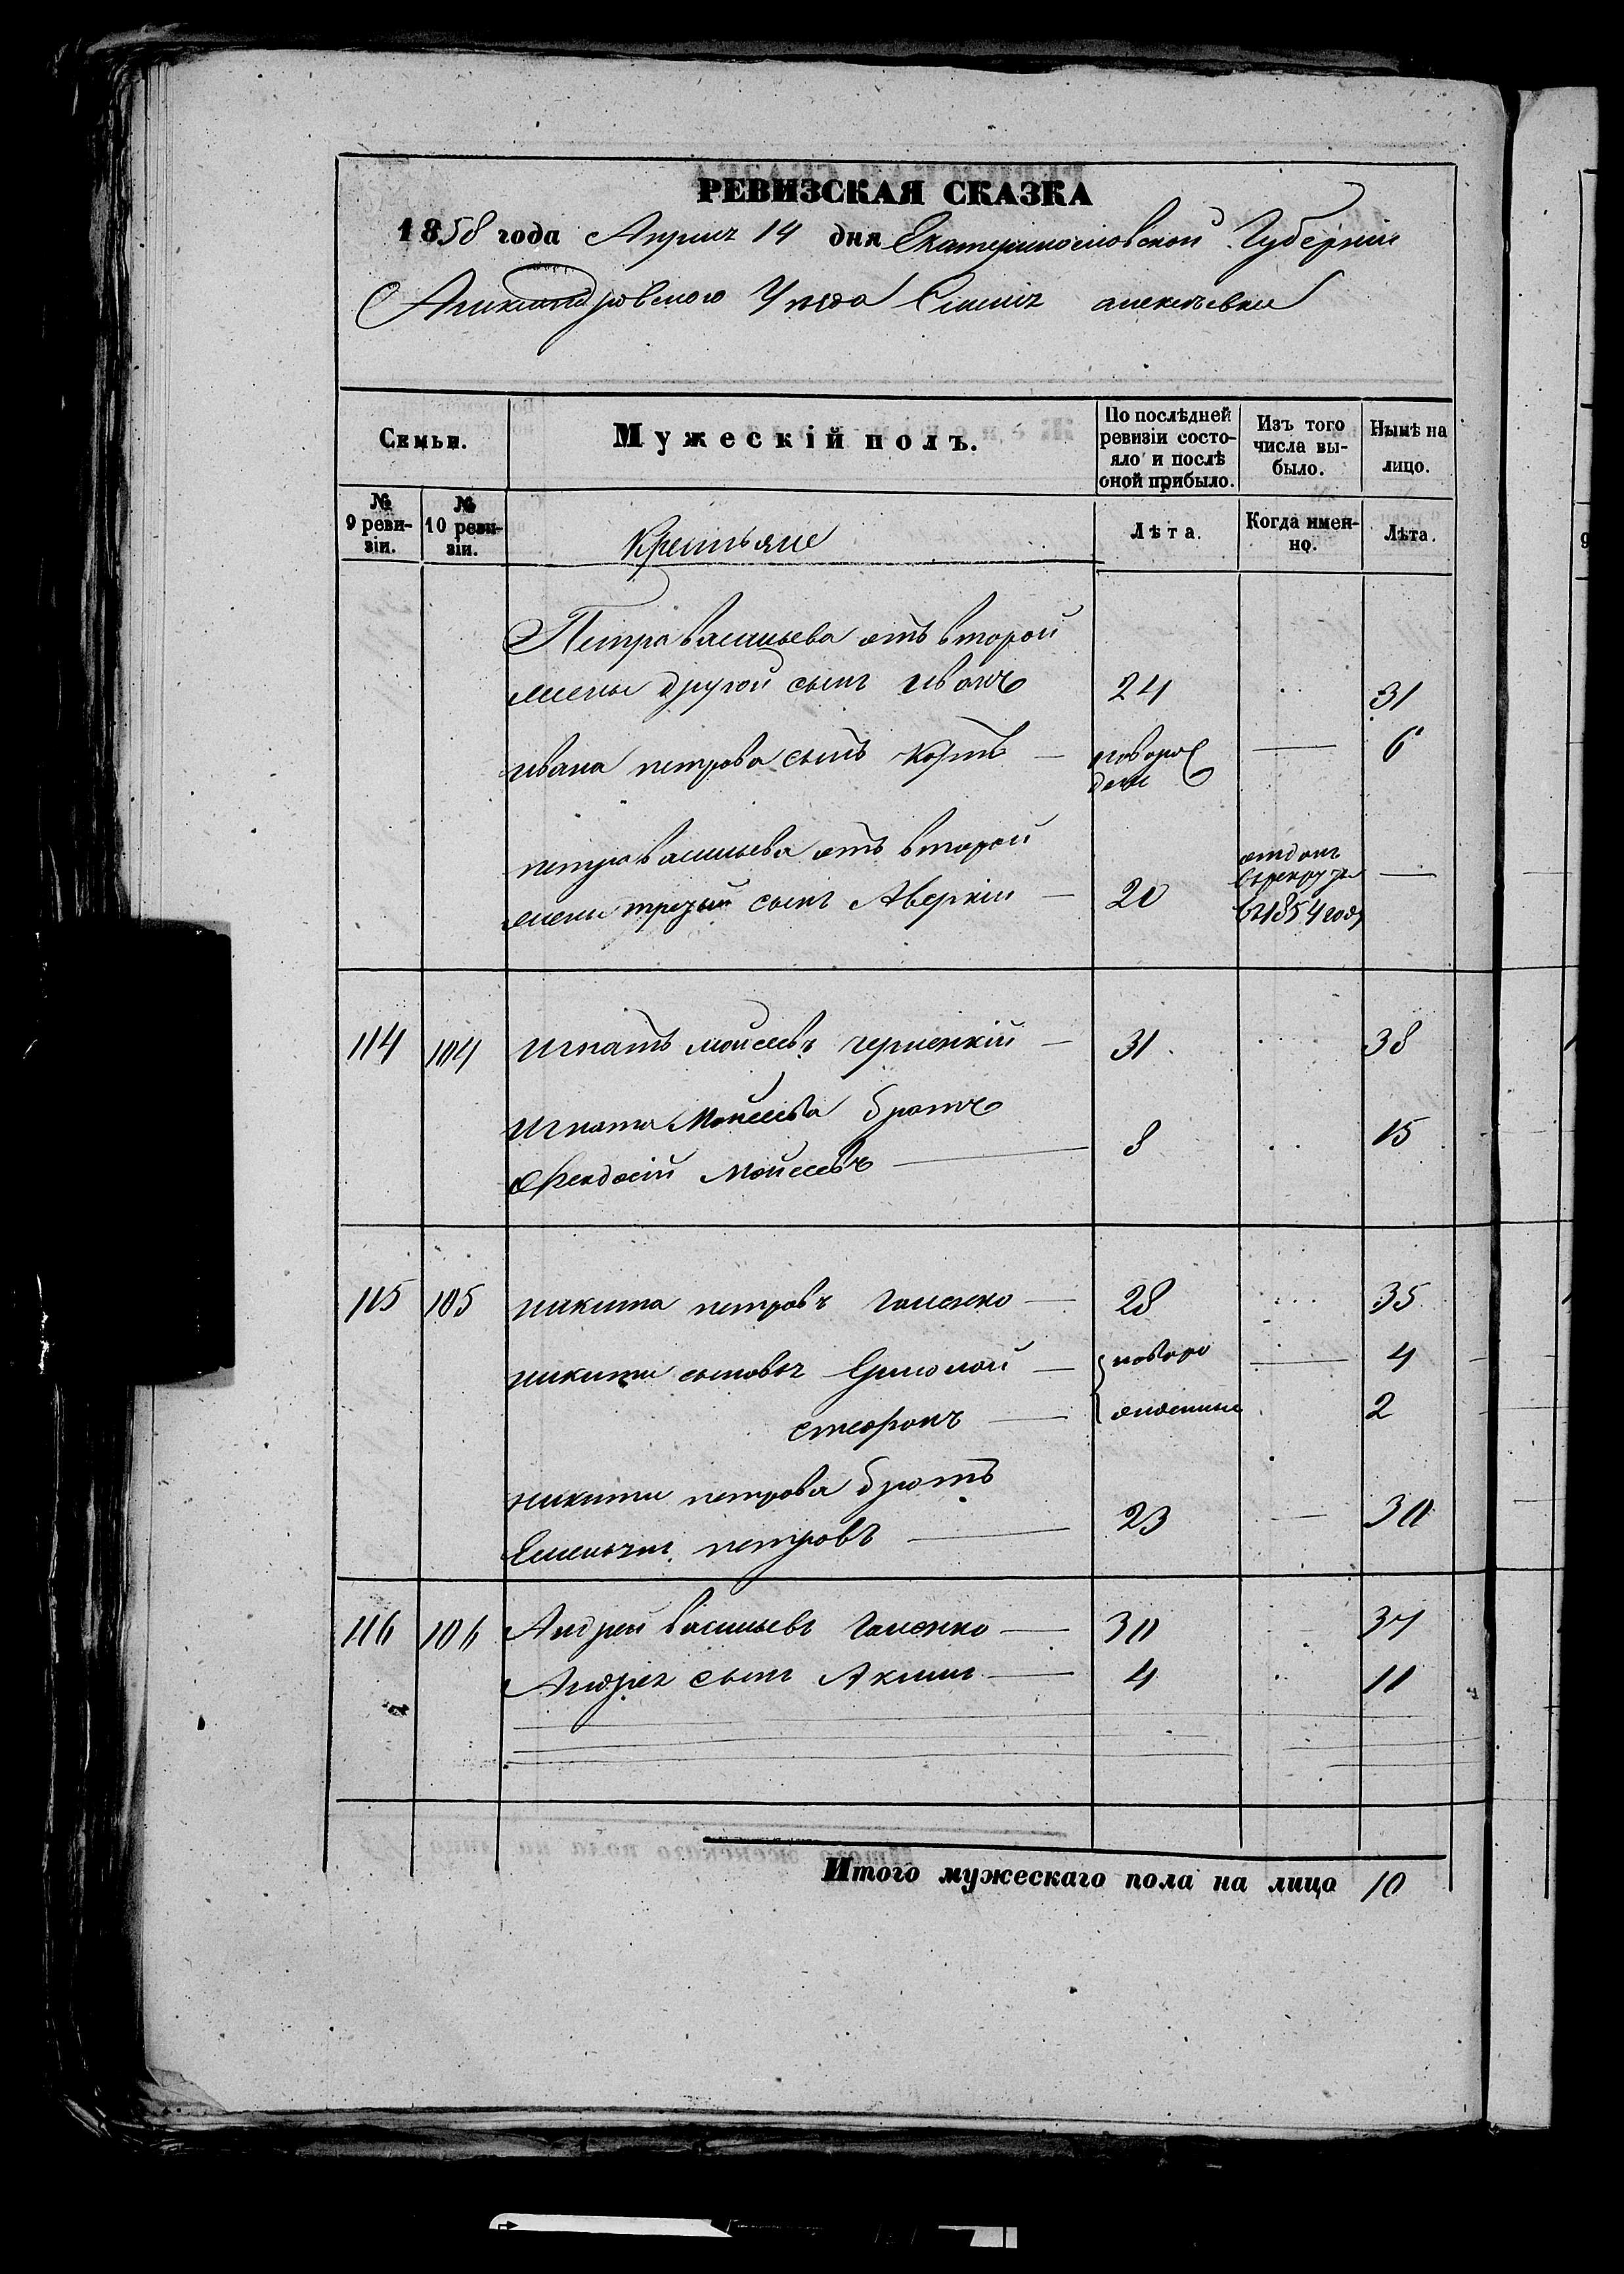 РЕВИЗСКАЯ СКАЗКА
1858 года Априля 14 дня Екатеринославской Губерніи
Александровскаго Уезда Селенія алексѣевки
Семьи.
Мужескій полъ.
По послѣдней ревизіи состо-яло и послѣ оной прибыло.
Изъ того числа вы-было.
Нынѣ на лицо.
№ 9 реви-зіи.
№ 10 реви-зіи.
Крестьяне
Лѣта.
Когда имен-но.
Лѣта.
Петра васильева отъ второй
жены другой сынъ иванъ 24 31
ивана петрова сынъ новорож
дене 6
петра васильева отъ второй
жены третий сынъ Аверкій 20 отданъ
въ рекруты
въ 1854 году
114 104 игнатъ моисеевъ 31 38
игната Моисеева братъ
Феодосій Моисеевъ 8 15
115 105 никита петровъ 28 35
никиты сыновья Ермолай новоро 4
стефанъ жденные 2
никиты петрова братъ
Емельянъ петровъ 23 30
116 106 Андрей васильевъ 30 37
Андрея сынъ Акимъ 4 11
Итого мужескаго пола на лицо 10